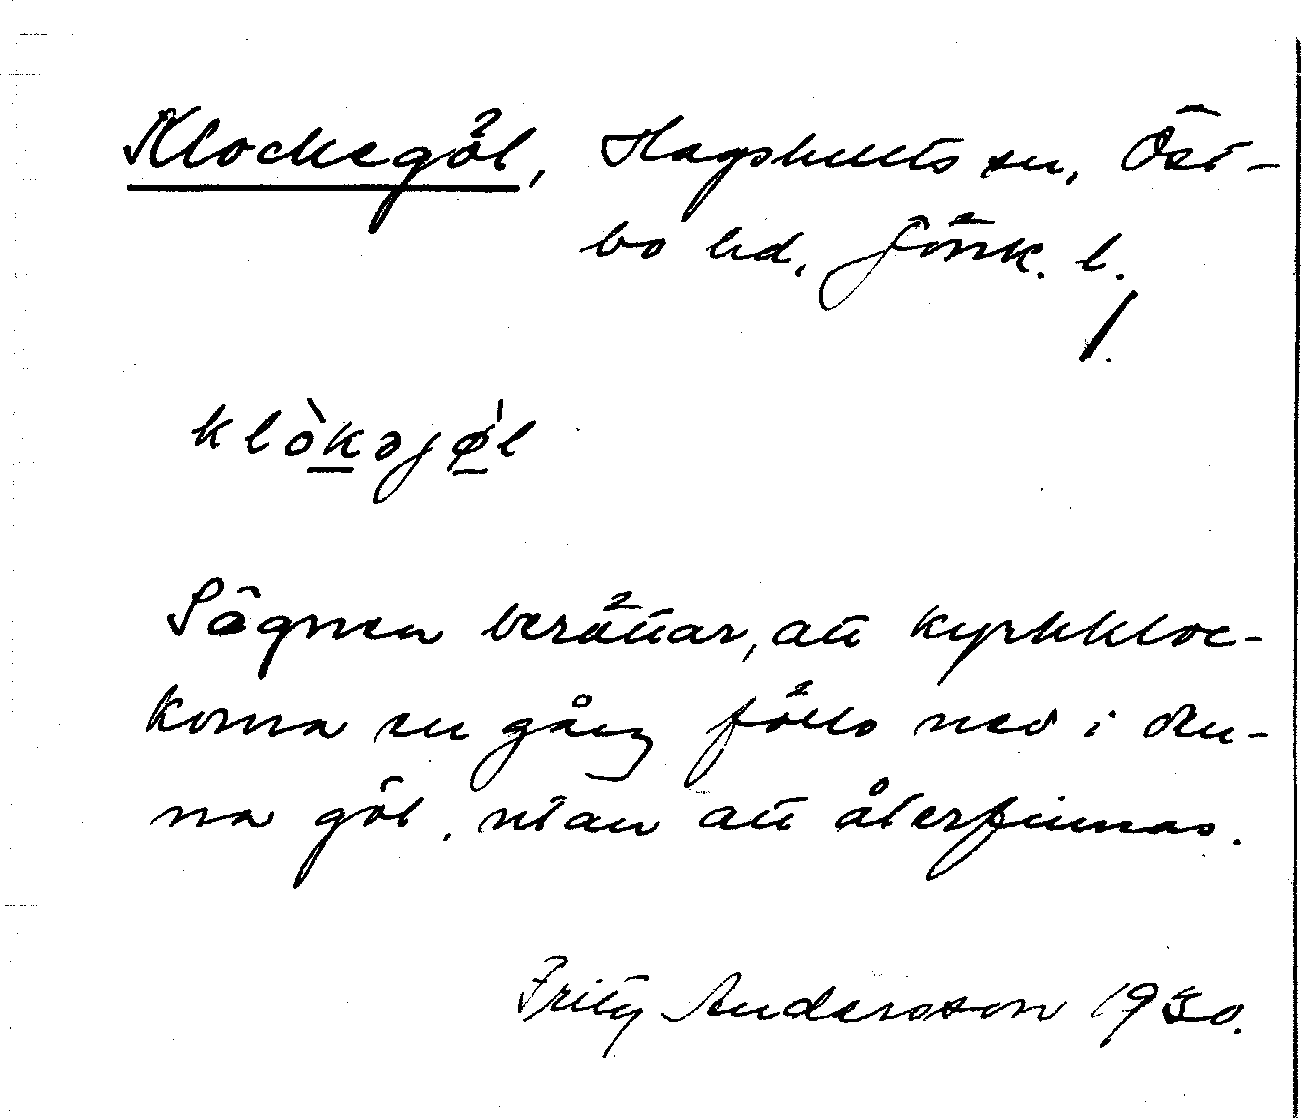 Klockegöl, Hagshults sn, Öst-
bo hd, Jönk. l.
/.
klòkəjǿl
Sägnen berättar, att kyrkkloc-
korna en gång fölls ned i den-
na göl, utan att återfinnas.
Fritz Andersson 1930.